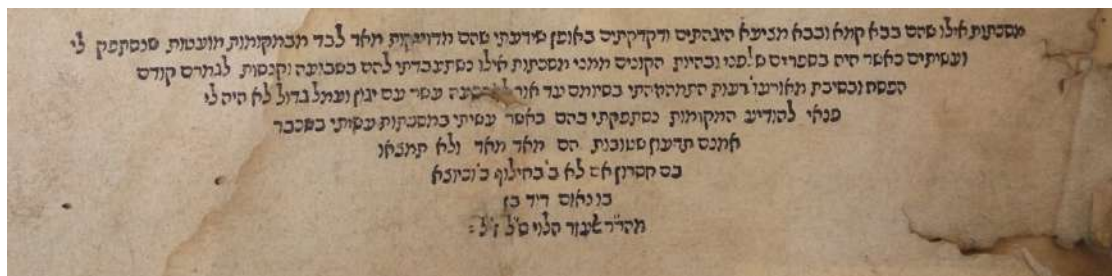 מסכתות אילו שהם בבא קמא ובבא מציעא היגהתים ודקדקתים באופן שידעתי שהם מדוייקות מאד לבד מבמקומות מועטות שנסתפק לי
ועשיתים כאשר היה בספרים שלפני ובהיות הקונים ממני מסכתות אילו כשתעבדתי להם בשבועה וקנסות לגמרם קודם
הפסח ובסיבת מאורעו׳ רעות התמהמהתי בסיומם עד אור עשר עם יגון ועמל גדול לא היה לי
פנאי להודיע המקומות נסתפקתי בהם כאשר עשיתי במסכתות עשיתי בשכבר
אמנם תדעון שטובות הם מאד מאד ולא תמצאו
בם חסרון אם לא ב׳ בחילוף כ׳ וכיוצא
בו נאום דוד בן
מהר״ר אלעזר הלוי ס״ל ז״ל: